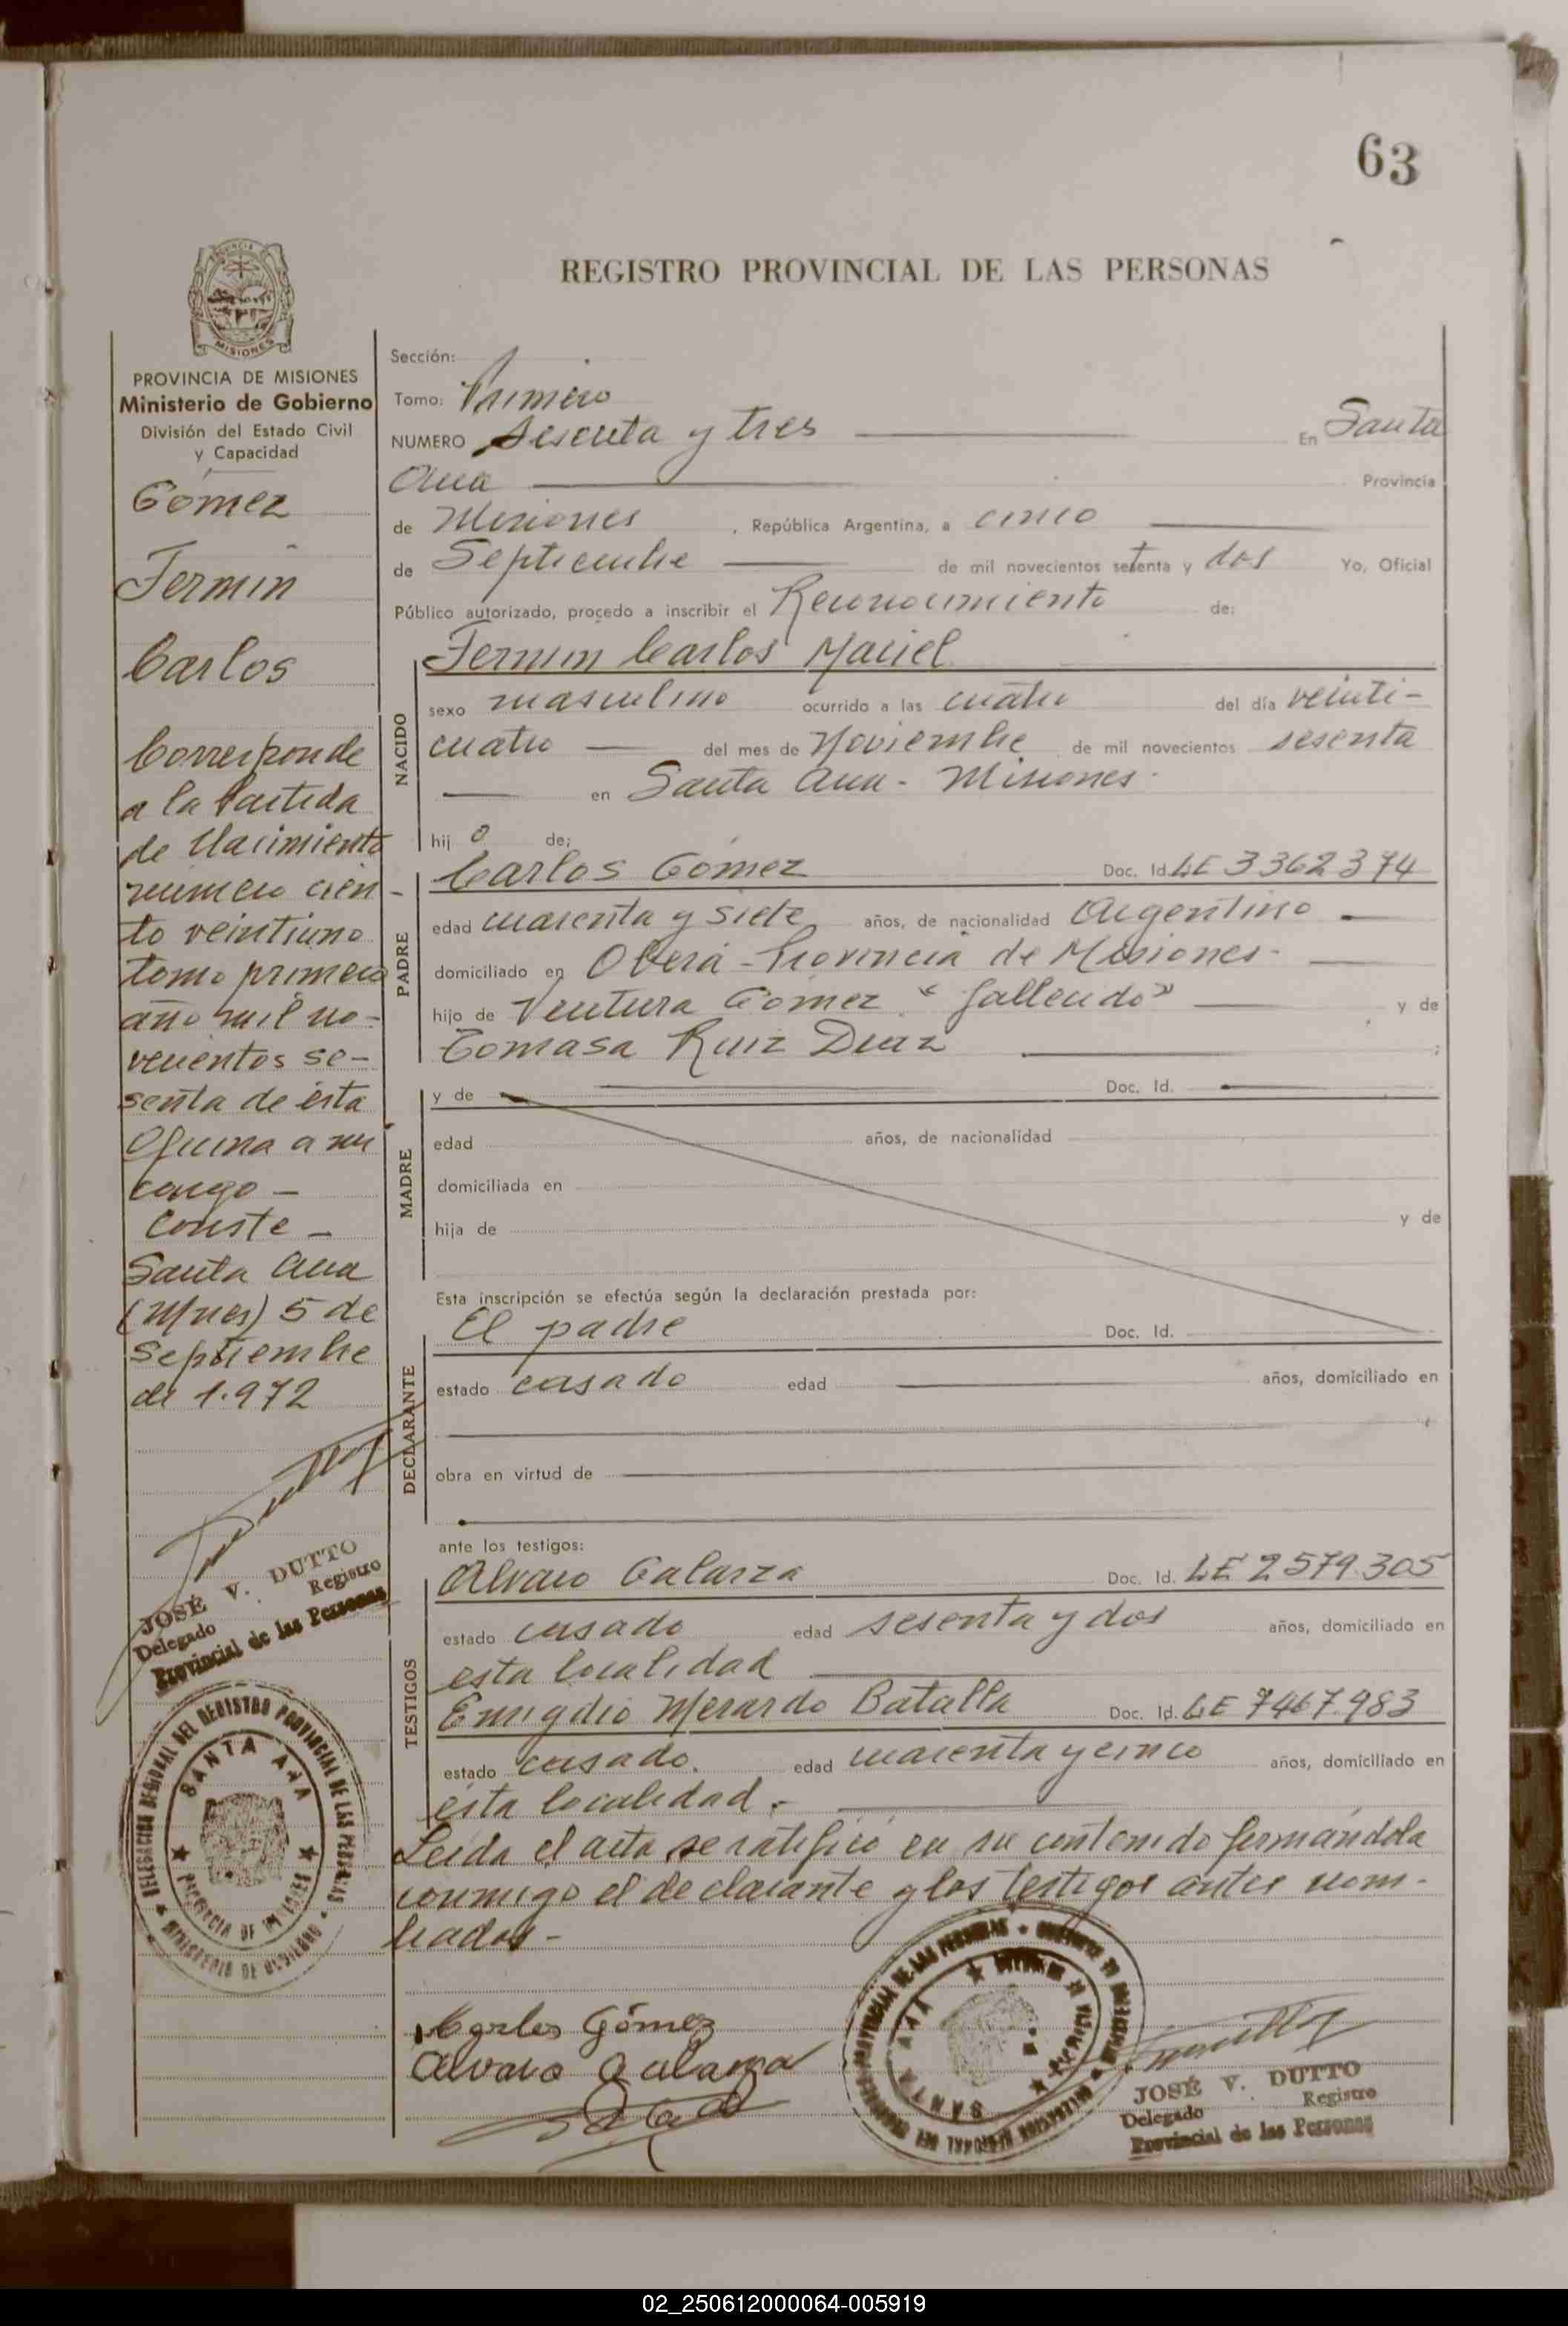 63
REGISTRO PROVINCIAL DE LAS PERSONAS
MISIONES
PROVINCIA DE MISIONES
Ministerio de Gobierno
División del Estado Civil
y Capacidad
Gómez
Fermin
Carlos
Corresponde
a la Partida
de Nacimiento
número cien-
to veintiuno
tomo primero
año mil no-
vecientos se-
senta de ésta
Oficina a mi
cargo -
Conste -
Santa Ana
(Mnes) 5 de
Septiembre
de 1.972
JOSÉ V. DUTTO
Delegado Registro
Provincial de las Personas
DELEGACION REGIONAL DEL REGISTRO PROVINCIAL DE LAS PERSONAS
SANTA ANA
PROVINCIA DE MISIONES
MINISTERIO DE GOBIERNO
Sección:
Tomo: Primero
NUMERO Sesenta y tres En Santa
Ana Provincia
de Misiones , República Argentina, a cinco
de Septiembre de mil novecientos setenta y dos Yo, Oficial
Público autorizado, procedo a inscribir el Reconocimiento de:
NACIDO
Fermin Carlos Maciel
sexo masculino ocurrido a las cuatro del día veinti-
cuatro del mes de Noviembre de mil novecientos sesenta
en Santa Ana - Misiones.
hij o de:
PADRE
Carlos Gómez Doc. Id. LE 3362374
edad cuarenta y siete años, de nacionalidad Argentino
domiciliado en Oberá - Provincia de Misiones -
hijo de Ventura Gómez "fallecido" y de
Tomasa Ruiz Diaz ;
MADRE
y de Doc. Id.
edad años, de nacionalidad
domiciliada en
hija de y de
Esta inscripción se efectúa según la declaración prestada por:
DECLARANTE
El padre Doc. Id.
estado casado edad años, domiciliado en
obra en virtud de
ante los testigos:
TESTIGOS
Alvaro Galarza Doc. Id. LE 2579.305
estado casado edad sesenta y dos años, domiciliado en
esta localidad
Emigdio Merardo Batalla Doc. Id. LE 7467.983
estado casado. edad cuarenta y cinco años, domiciliado en
ésta localidad.-
Leida el acta se ratificó en su contenido firmándola
conmigo el declarante y los testigos antes nom-
brados -
Carlos Gómez
Alvaro Galarza
SANTA ANA
JOSÉ V. DUTTO
Delegado Registro
Provincial de las Personas
02_250612000064-005919